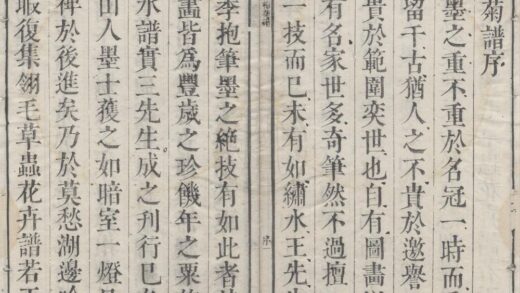 菊譜序
墨之重不重於名冠一時而
留千古猶人之不貴於邀譽
貴於範圍奕世也自有圖畫
有名家世多奇筆然不過擅
一技而已未有如繡水王先
序
李抱筆墨之絶技有如此者
畫皆為豐歲之珍饑年之粟
水譜實三先生成之刊行已
山人墨士獲之如暗室一燈
裨於後進矣乃於莫愁湖邊
暇復集翎毛草蟲花卉譜若